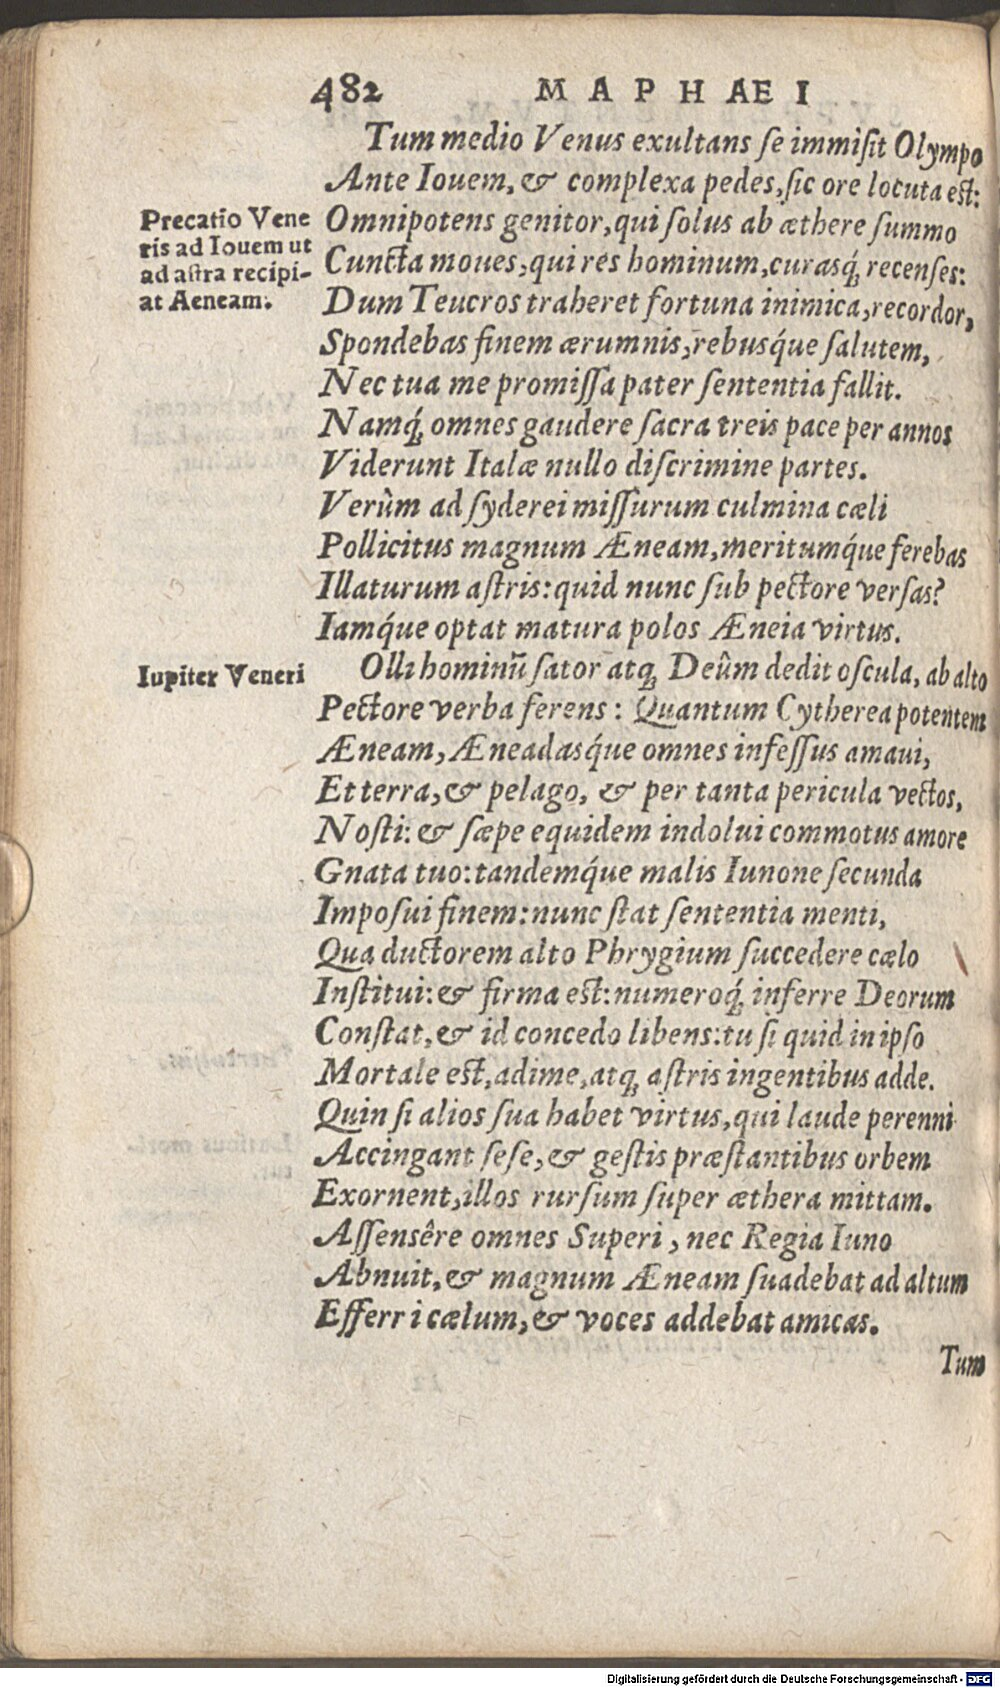 482 MAPHAEI
Tum medio Venus exultans se immisit Olympo
Ante Iouem, & complexa pedes, sic ore locuta est:
Precatio Vene
ris ad Iouem ut
ad astra recipi-
at Aeneam.
Omnipotens genitor, qui solus ab æthere summo
Cuncta moues, qui res hominum, curasq́; recenses:
Dum Teucros traheret fortuna inimica, recordor,
Spondebas finem ærumnis, rebusq́ue salutem,
Nec tua me promissa pater sententia fallit.
Namq́; omnes gaudere sacra treis pace per annos
Viderunt Italæ nullo discrimine partes.
Verùm ad syderei missurum culmina cæli
Pollicitus magnum Æneam, meritumq́ue ferebas
Illaturum astris: quid nunc sub pectore versas?
Iamq́ue optat matura polos Æneia virtus.
Iupiter Veneri
Olli hominū sator atq; Deûm dedit oscula, ab alto
Pectore verba ferens: Quantum Cytherea potentem
Æneam, Æneadasq́ue omnes infessus amaui,
Et terra, & pelago, & per tanta pericula vectos,
Nosti: & sæpe equidem indolui commotus amore
Gnata tuo: tandemq́ue malis Iunone secunda
Imposui finem: nunc stat sententia menti,
Qua ductorem alto Phrygium succedere cælo
Institui: & firma est: numeroq́; inferre Deorum
Constat, & id concedo libens: tu si quid in ipso
Mortale est, adime, atq; astris ingentibus adde.
Quin si alios sua habet virtus, qui laude perenni
Accingant sese, & gestis præstantibus orbem
Exornent, illos rursum super æthera mittam.
Assensêre omnes Superi, nec Regia Iuno
Abnuit, & magnum Æneam suadebat ad altum
Efferri cælum, & voces addebat amicas.
Tum
Digitalisierung gefördert durch die Deutsche Forschungsgemeinschaft - DFG